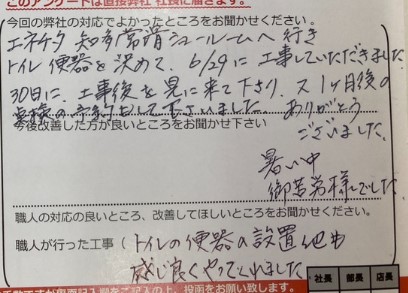 このアンケートは直接弊社 社長に届きます。
今回の弊社の対応でよかったところをお聞かせください。
エネチタ 知多常滑ショールームへ行き
トイレ便器を決めて、6/29に工事していただきました
30日に、工事後を見に来て下さり、又1ヶ月後の
点検の予約もして下さいました。ありがとう
ございました。
今後改善した方が良いところをお聞かせ下さい
暑い中
御苦労様でした
職人の対応の良いところ、改善してほしいところをお聞かせください。
職人が行った工事(トイレの便器の設置他も
感じ良くやってくれました
社長 部長 店長
上、投函をお願い致します。